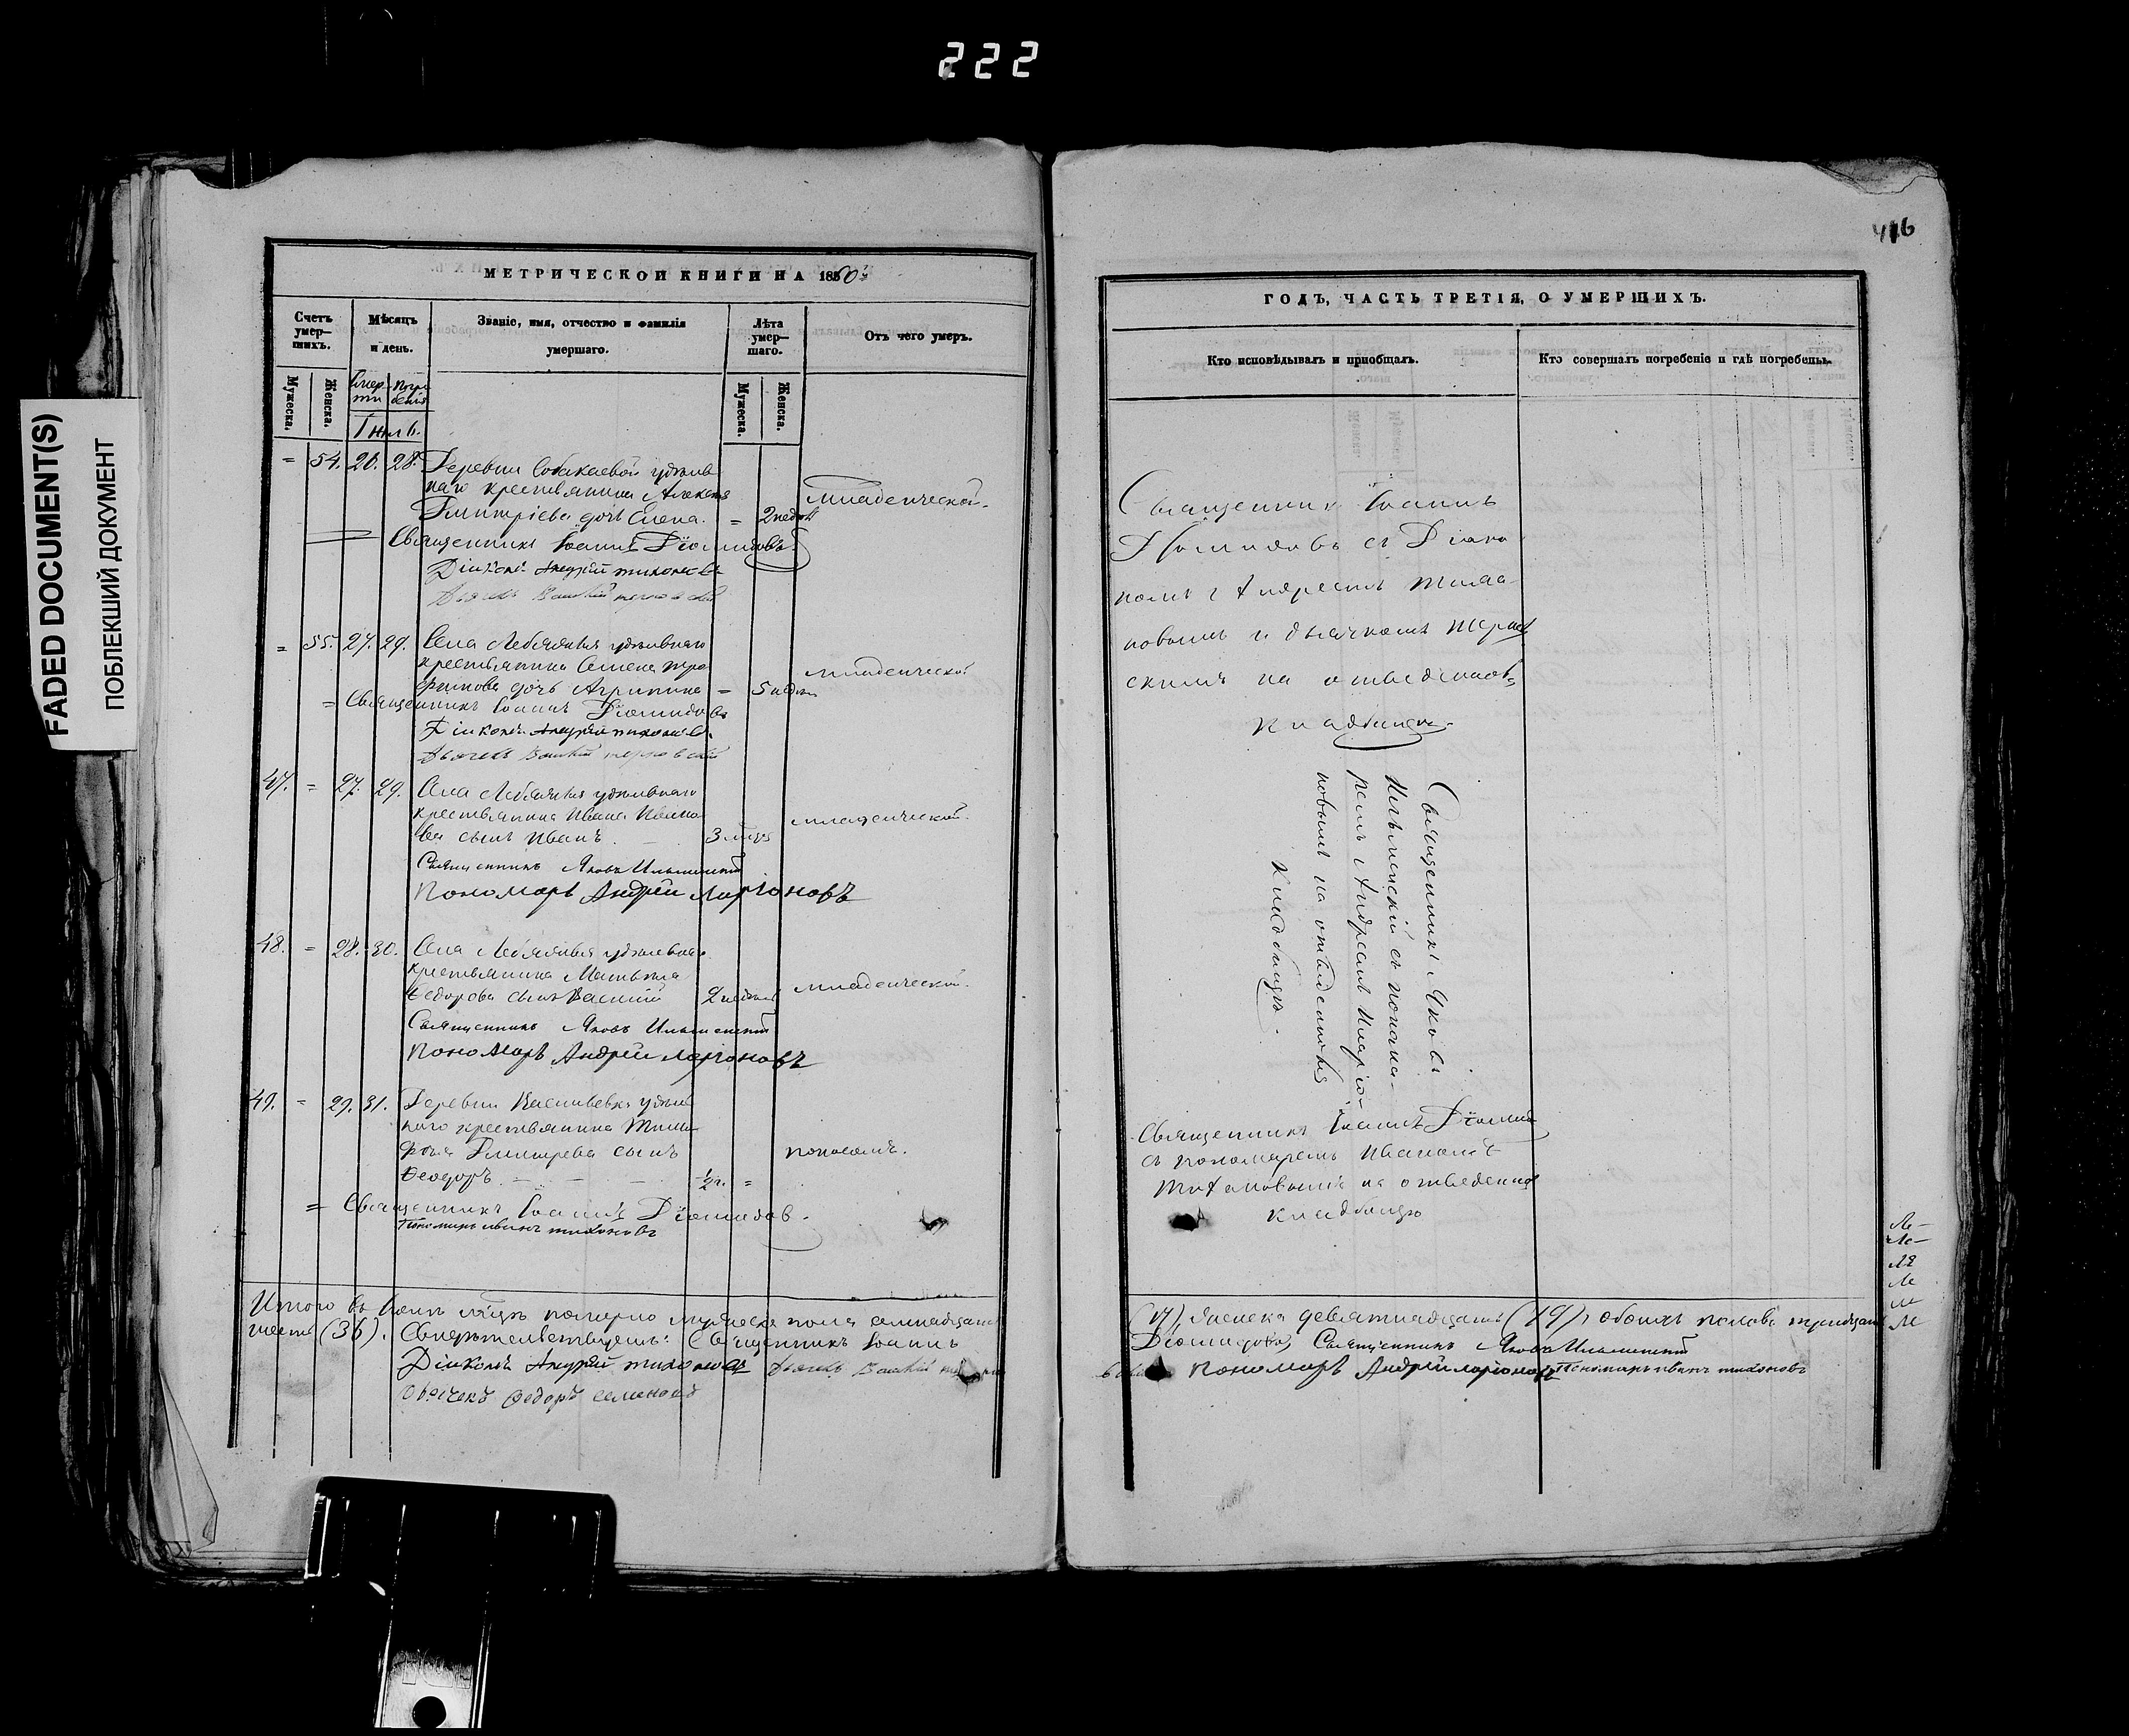 222
FADED DOCUMENT(S)
ПОБЛЕКШИЙ ДОКУМЕНТ
МЕТРИЧЕСКОЙ КНИГИ НА 1860й
Счетъ умер—шихъ.
Мѣсяцъ и день.
Званіе, имя, отчество и фамилія умершаго.
Лѣта умер—шаго.
Отъ чего умеръ.
Мужеска.
Женска.
Смерти
Погребенія
Мужеска.
Женска.
Іюль.
= 54. 26. 28. Деревни Собакаевой удѣль
наго крестьянина Алексѣя
Димитріева дочь Елена. = 2 недѣл
Младенческой.
Священникъ Іоаннъ Діомидовъ
Діаконъ Андрей Тихоновъ
Дьячекъ
= 55. 27. 29. Села Лебяжья удѣльнаго
крестьянина Семена Тро
фимова дочь Агрипина = 5 недѣл
младенческой
= Священникъ Іоаннъ Діомидовъ
Діаконъ Андрей Тихоновъ.
Дьячекъ
47. = 27. 29. Села Лебяжья удѣльнаго
крестьянина Ивана
ва сынъ Иванъ. 3 мѣся
младенческой.
Священникъ Яковъ
Пономарь Андрей Ларіоновъ
48. = 28. 30. Села Лебяжья удѣльнаго
крестьянина Матвѣя
Ѳедорова сынъ Василій 2 недѣли
младенческой.
Священникъ Яковъ
Пономарь Андрей Ларіоновъ
49. = 29. 31. Деревни Васильевки удѣль
наго крестьянина Тимо
фѣя Димитрева сынъ
Ѳеодоръ. — — — 1/2 г. =
поносомъ.
= Священникъ Іоаннъ Діомидов.
Пономарь Иванъ Тихоновъ
Итого въ Іюлѣ мѣсцѣ померло мужеска пола семнадцать
шесть (36). Свидѣтельствуемъ: Священникъ Іоаннъ
Діаконъ Андрей Тихоновъ Дьячекъ
Дьячекъ Ѳедоръ Семеновъ
416
ГОДЪ, ЧАСТЬ ТРЕТІЯ, О УМЕРШИХЪ.
Кто исповѣдывалъ и пріобщалъ.
Кто совершалъ погребеніе и гдѣ погребены.
Священникъ Іоаннъ
Діомидовъ съ Діако
номъ Андреемъ Тихо
новымъ и дьячкомъ
скимъ на отведенномъ
кладбищѣ.
Священникъ Яковъ
съ понома-
ремъ Андреемъ Иларіо-
новымъ на отведенномъ
кладбищѣ.
Священникъ Іоаннъ Діомид
съ пономаремъ Иваномъ
Тихоновымъ на отведенномъ
кладбищѣ
(17), женска девятнадцать (19), обоихъ половъ тридцать
Діомидовъ, Священникъ Яковъ
Пономарь Андрей Ларіоновъ Пономарь Иванъ Тихоновъ